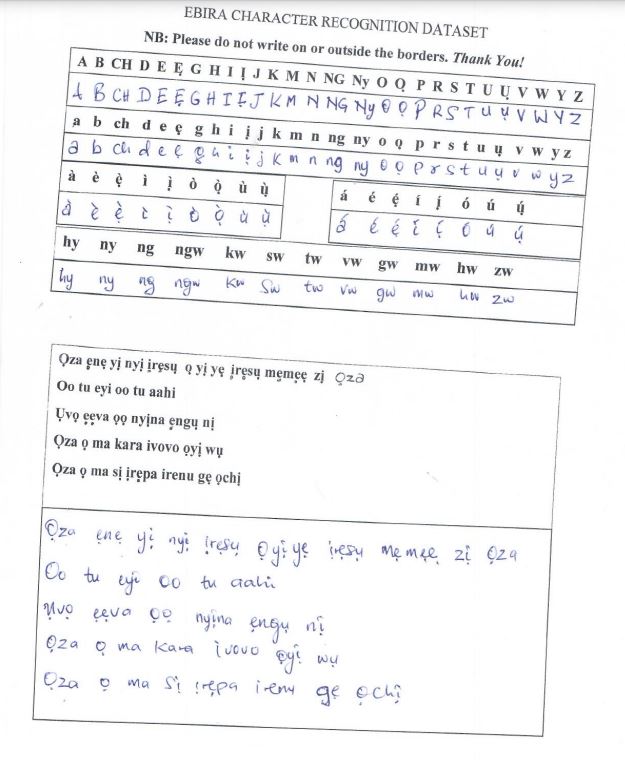 EBIRA CHARACTER RECOGNITION DATASET
NB: Please do not write on or outside the borders. Thank You!
A B CH D E Ẹ G H I Ị J K M N NG Ny O Ọ P R S T U Ụ V W Y Z
A B CH D E Ẹ G H I Ị J K M N NG Ny O Ọ P R S T U Ụ V W Y Z
a b ch d e ẹ g h i ị j k m n ng ny o ọ p r s t u ụ v w y z
a b ch d e ẹ g h i ị j k m n ng ny o ọ p r s t u ụ v w y z
à è ẹ̀ ì ị̀ ò ọ̀ ù ụ̀ á é ẹ́ í ị́ ó ú ụ́
à è ẹ̀ ì ị̀ ò ọ̀ ù ụ̀ á é ẹ́ í ị́ ó ú ụ́
hy ny ng ngw kw sw tw vw gw mw hw zw
hy ny ng ngw kw sw tw vw gw mw hw zw
Ọza ẹnẹ yị nyị ịrẹsụ ọ yị yẹ ịrẹsụ mẹmẹẹ zị Ọza
Oo tu eyi oo tu aahi
Ụvọ ẹẹva ọọ nyịna ẹngụ nị
Ọza ọ ma kara ivovo ọyị wụ
Ọza ọ ma sị ịrẹpa irenu gẹ ọchị
Ọza ẹnẹ yị nyị ịrẹsụ Ọyị yẹ ịrẹsụ mẹmẹẹ zị Ọza
Oo tu eyi oo tu aahi
Ụvọ ẹẹva ọọ nyịna ẹngụ nị
Ọza ọ ma kara ivovo ọyị wụ
Ọza ọ ma sị ịrẹpa irenu gẹ ọchị